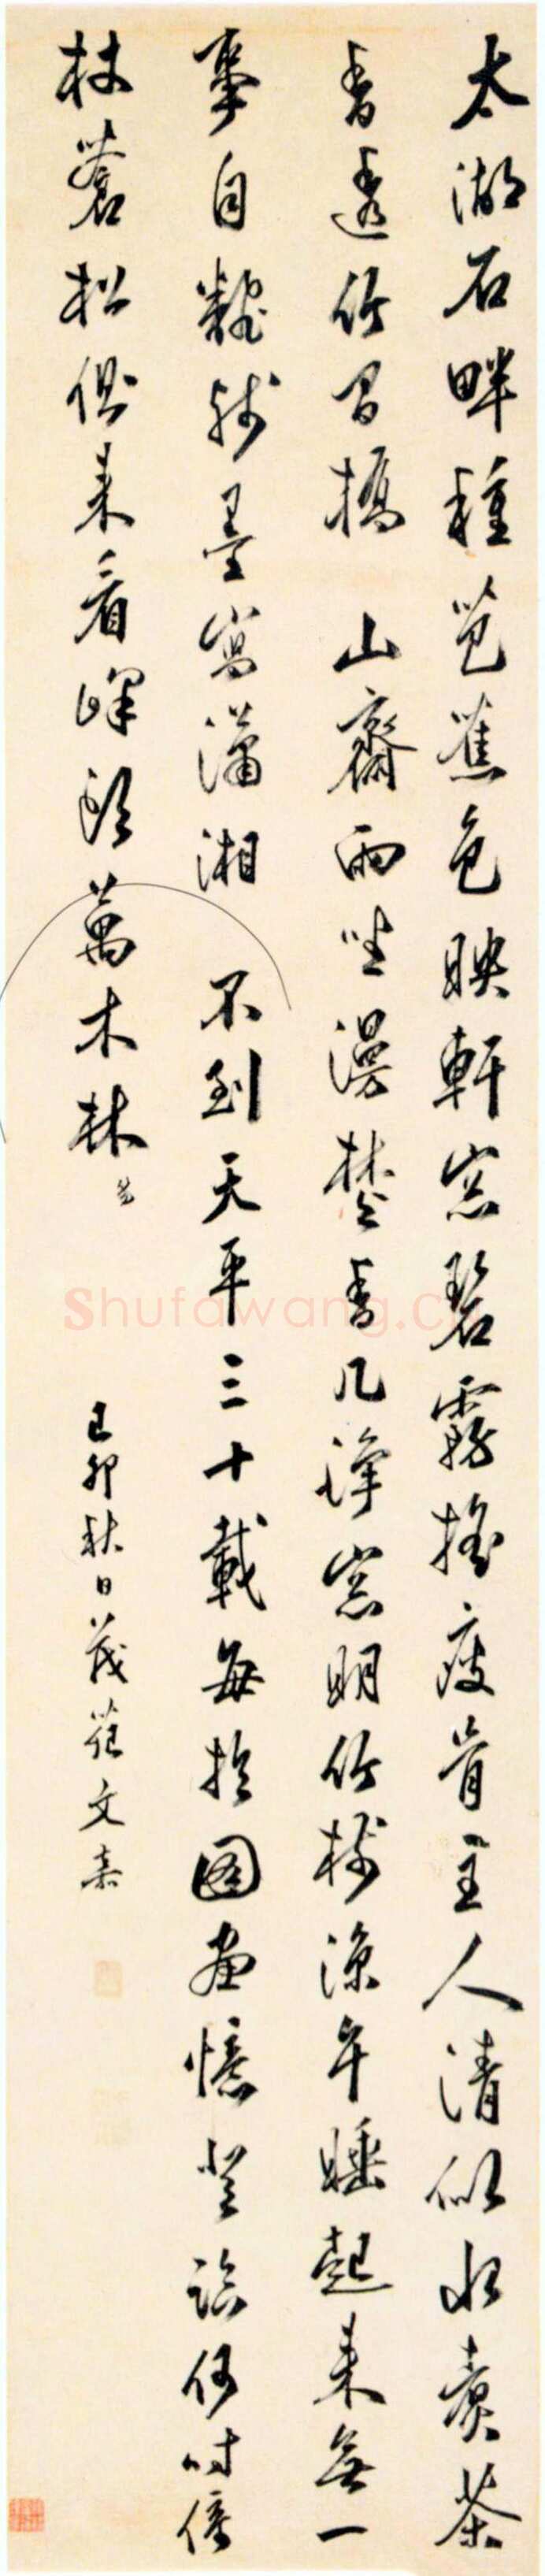 太湖石畔種芭蕉色映軒窓碧霧搖瘦骨主人清似水煮茶
香透竹間橋 山齋雨坐漫焚香几淨窓明竹樹涼午睡起來無一
事自整殘墨寫瀟湘 不到天平三十載每於圖畫憶登臨何時倚
杖蒼松側來看峰頭萬木林
己卯秋日茂苑文嘉
Shufawang.c